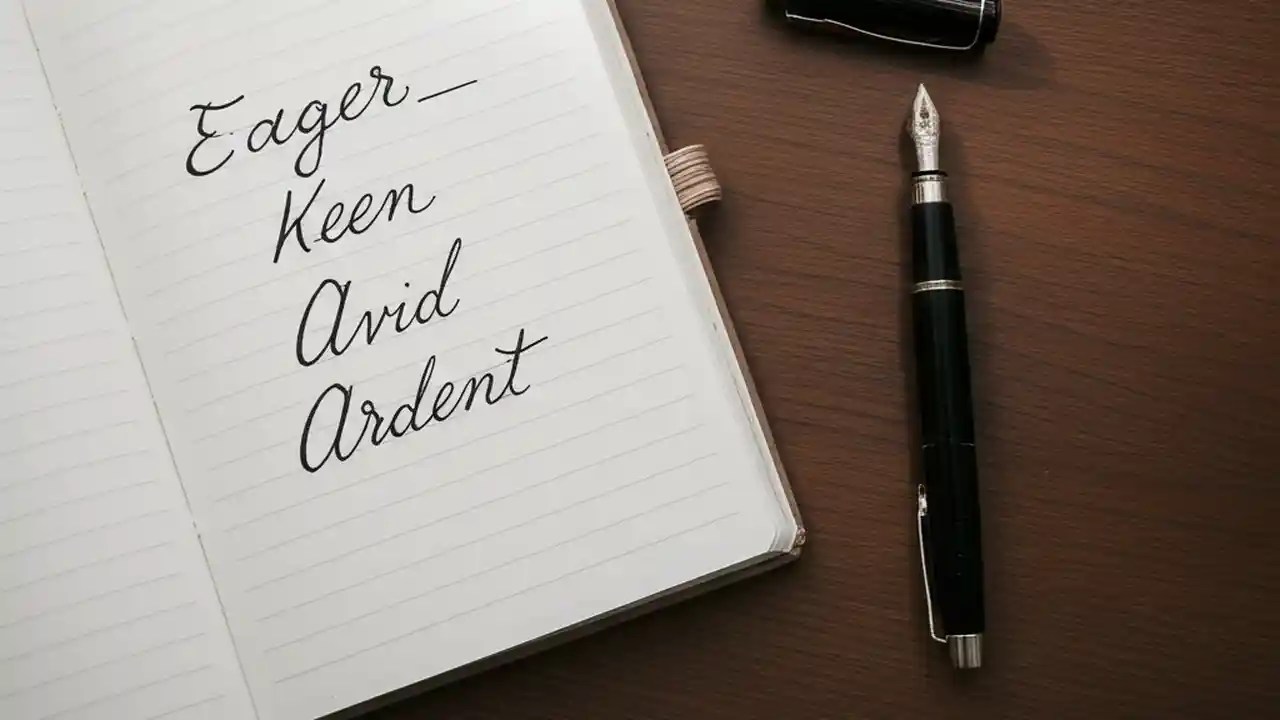 Eager_
Keen
Avid
Ardent